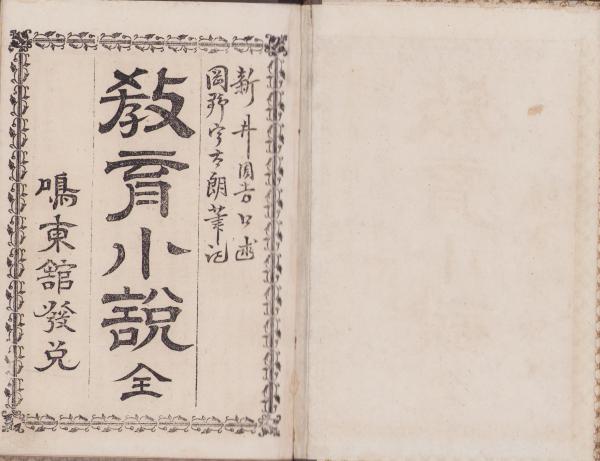 新井園吉口述
岡野宇太朗筆記
教育小說 全
鳴東館發兌